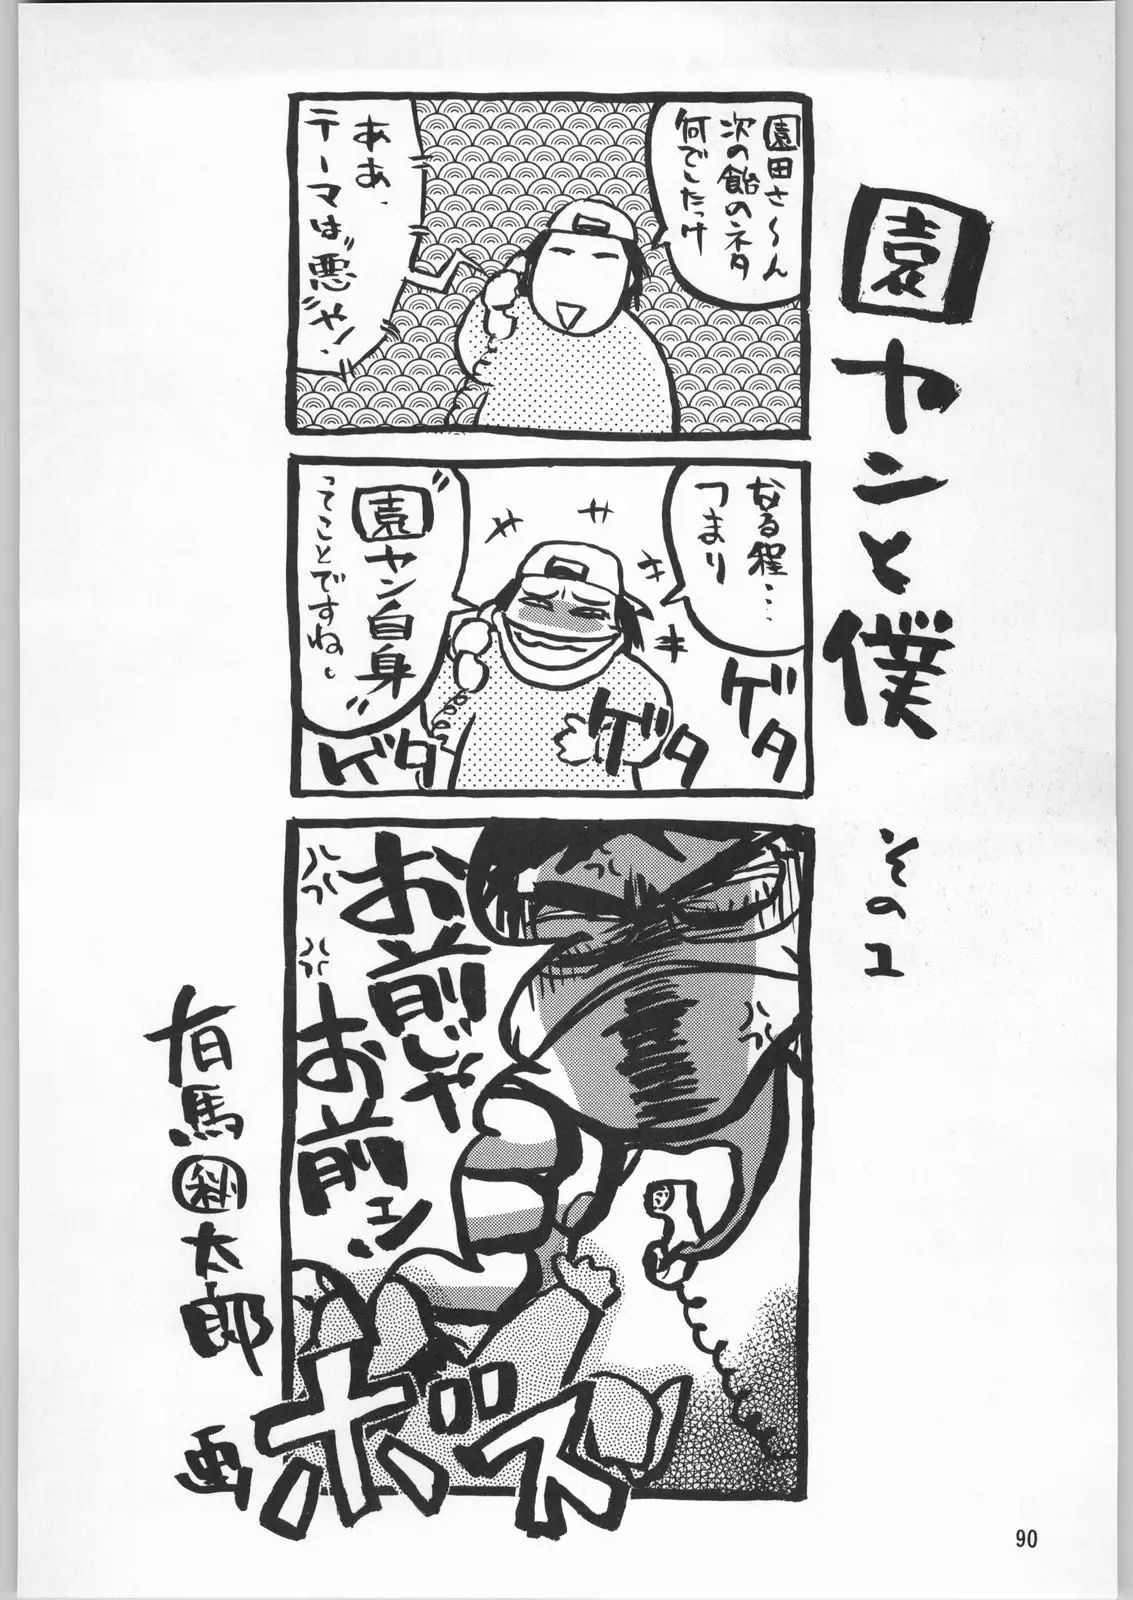 園ヤンと僕
その1
園田さ〜ん
次の飴のネタ
何でしたっけ
ああ、
テーマは"悪"やン、
なる程…
つまり
園ヤン自身
ってことですねー
ゲタ
ゲタ
ゲタ
お前じゃ
お前ェッ
有馬㊙太郎
画
90